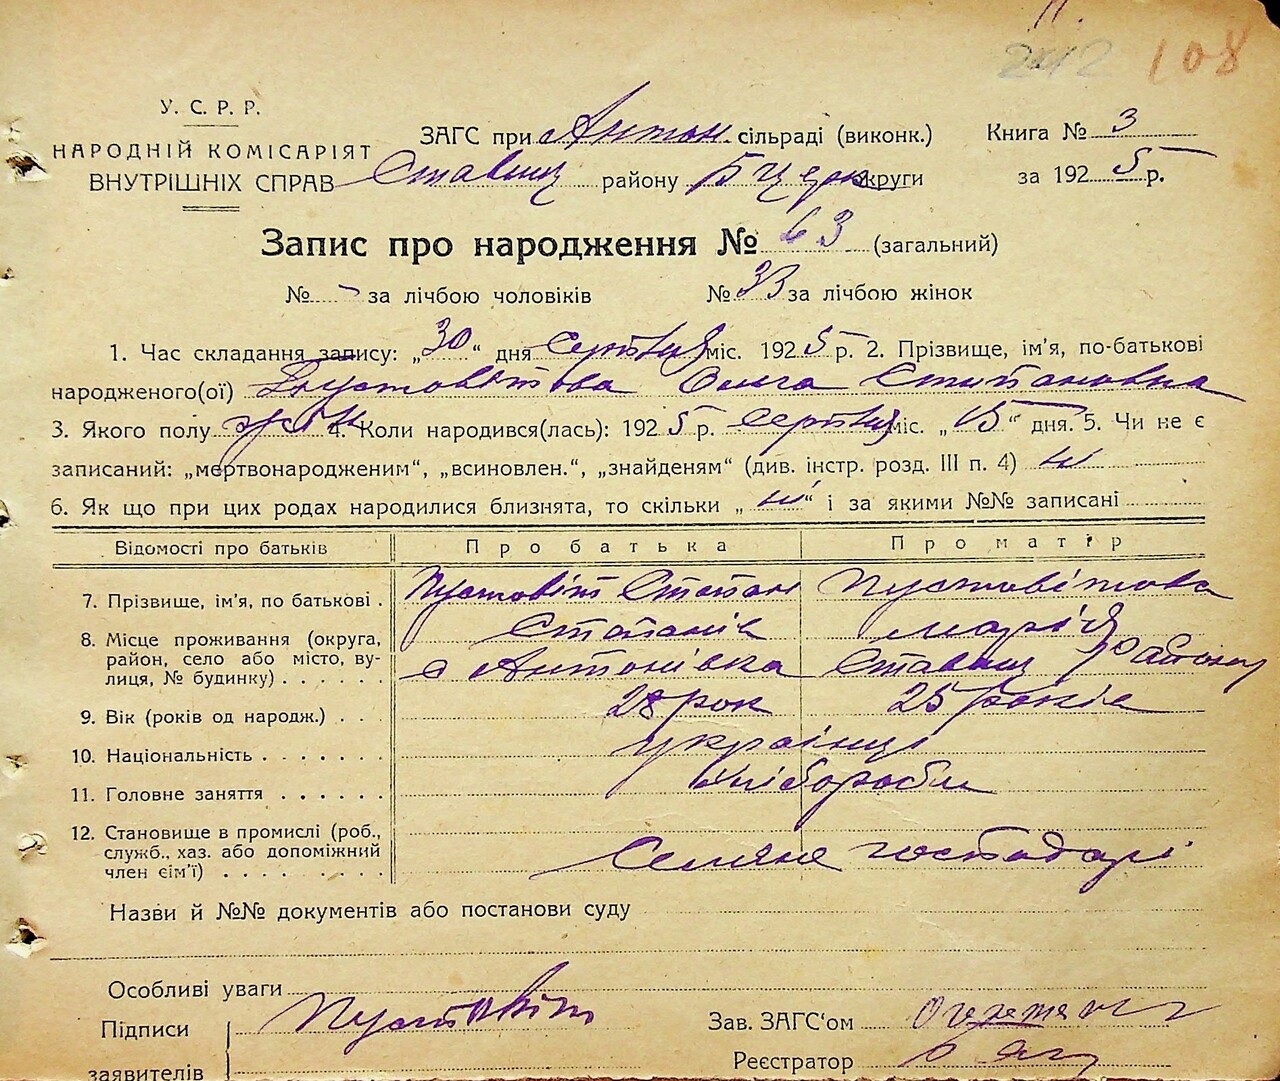 11.
242 108
У. С. Р. Р.
НАРОДНІЙ КОМІСАРІЯТ
ВНУТРІШНІХ СПРАВ
ЗАГС при Антон. сільраді (виконк.)
Ставищ району Бцерк округи
Книга № 3
за 1925 р.
Запис про народження № 63 (загальний)
№ - за лічбою чоловіків № 33 за лічбою жінок
1. Час складання запису: „30“ дня серпня міс. 1925 р. 2. Прізвище, ім'я, по-батькові
народженого(ої) Пустовітова Ольга Степановна
3. Якого полу жін 4. Коли народився(лась): 1925 р. серпня міс. „15“ дня. 5. Чи не є
записаний: „мертвонародженим“, „всиновлен.“, „знайденям“ (див. інстр. розд. III п. 4) ні
6. Як що при цих родах народилися близнята, то скільки „ні“ і за якими №№ записані
Відомості про батьків Про батька Про матір
7. Прізвище, ім'я, по батькові . Пустовіт Степан Пустовітова
8. Місце проживання (округа, Степанів Марія
район, село або місто, ву-
лиця, № будинку) . . . . . с Антонівка Ставищ району
9. Вік (років од народж.) . . . 28 рок 25 років
10. Національність . . . . . . . українці
11. Головне заняття . . . . . . хлібороби
12. Становище в промислі (роб.,
служб., хаз. або допоміжний
член сім'ї) . . . . . . . . . Селяне господарі
Назви й №№ документів або постанови суду
Особливі уваги
Підписи Пустовіт Зав. ЗАГС'ом
Реєстратор
заявителів